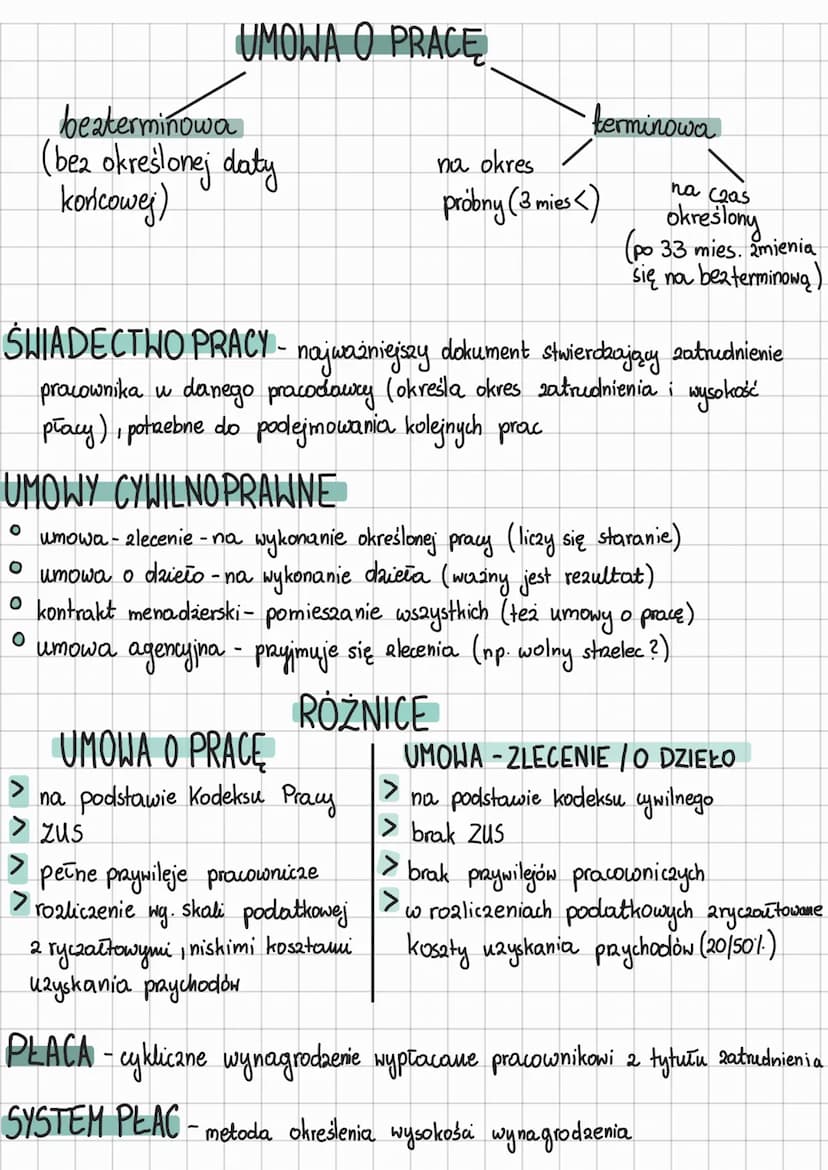 UMOWA O PRACĘ
bezterminowa
(bez określonej daty
końcowej)
terminowa
na okres
próbny (3 mies<)
na czas
określony
(po 33 mies. zmienia
się na bezterminową)
ŚWIADECTWO PRACY - najważniejszy dokument stwierdzający zatrudnienie
pracownika u danego pracodawcy (określa okres zatrudnienia i wysokość
płacy), potrzebne do podejmowania kolejnych prac
UMOWY CYWILNOPRAWNE
umowa-zlecenie - na wykonanie określonej pracy (liczy się staranie)
umowa o dzieło - na wykonanie dzieła (ważny jest rezultat)
kontrakt menadżerski - pomieszanie wszystkich (też umowy o pracę)
umowa agencyjna - przyjmuje się zlecenia (np. wolny strzelec?)
RÓŻNICE
UMOWA O PRACĘ
> na podstawie Kodeksu Pracy
> ZUS
> pełne przywileje pracownicze
> rozliczenie wg. skali podatkowej
z ryczałtowymi, niskimi kosztami
uzyskania przychodów
UMOWA - ZLECENIE / O DZIEŁO
> na podstawie kodeksu cywilnego
> brak ZUS
> brak przywilejów pracowniczych
> w rozliczeniach podatkowych zryczałtowane
koszty uzyskania przychodów (20/50%)
PŁACA - cykliczne wynagrodzenie wypłacane pracownikowi z tytułu zatrudnienia
SYSTEM PŁAC - metoda określenia wysokości wynagrodzenia